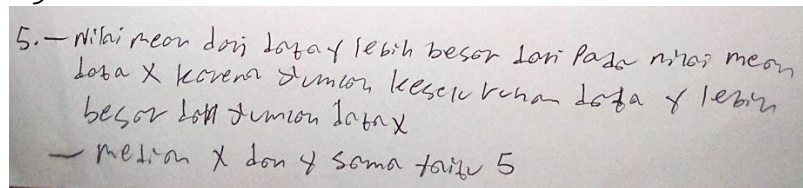 5. - Nilai mean dari data y lebih besar dari pada nilai mean
data X karena jumlah keseluruhan data y lebih
besar dari jumlah data x
- median X dan y sama yaitu 5